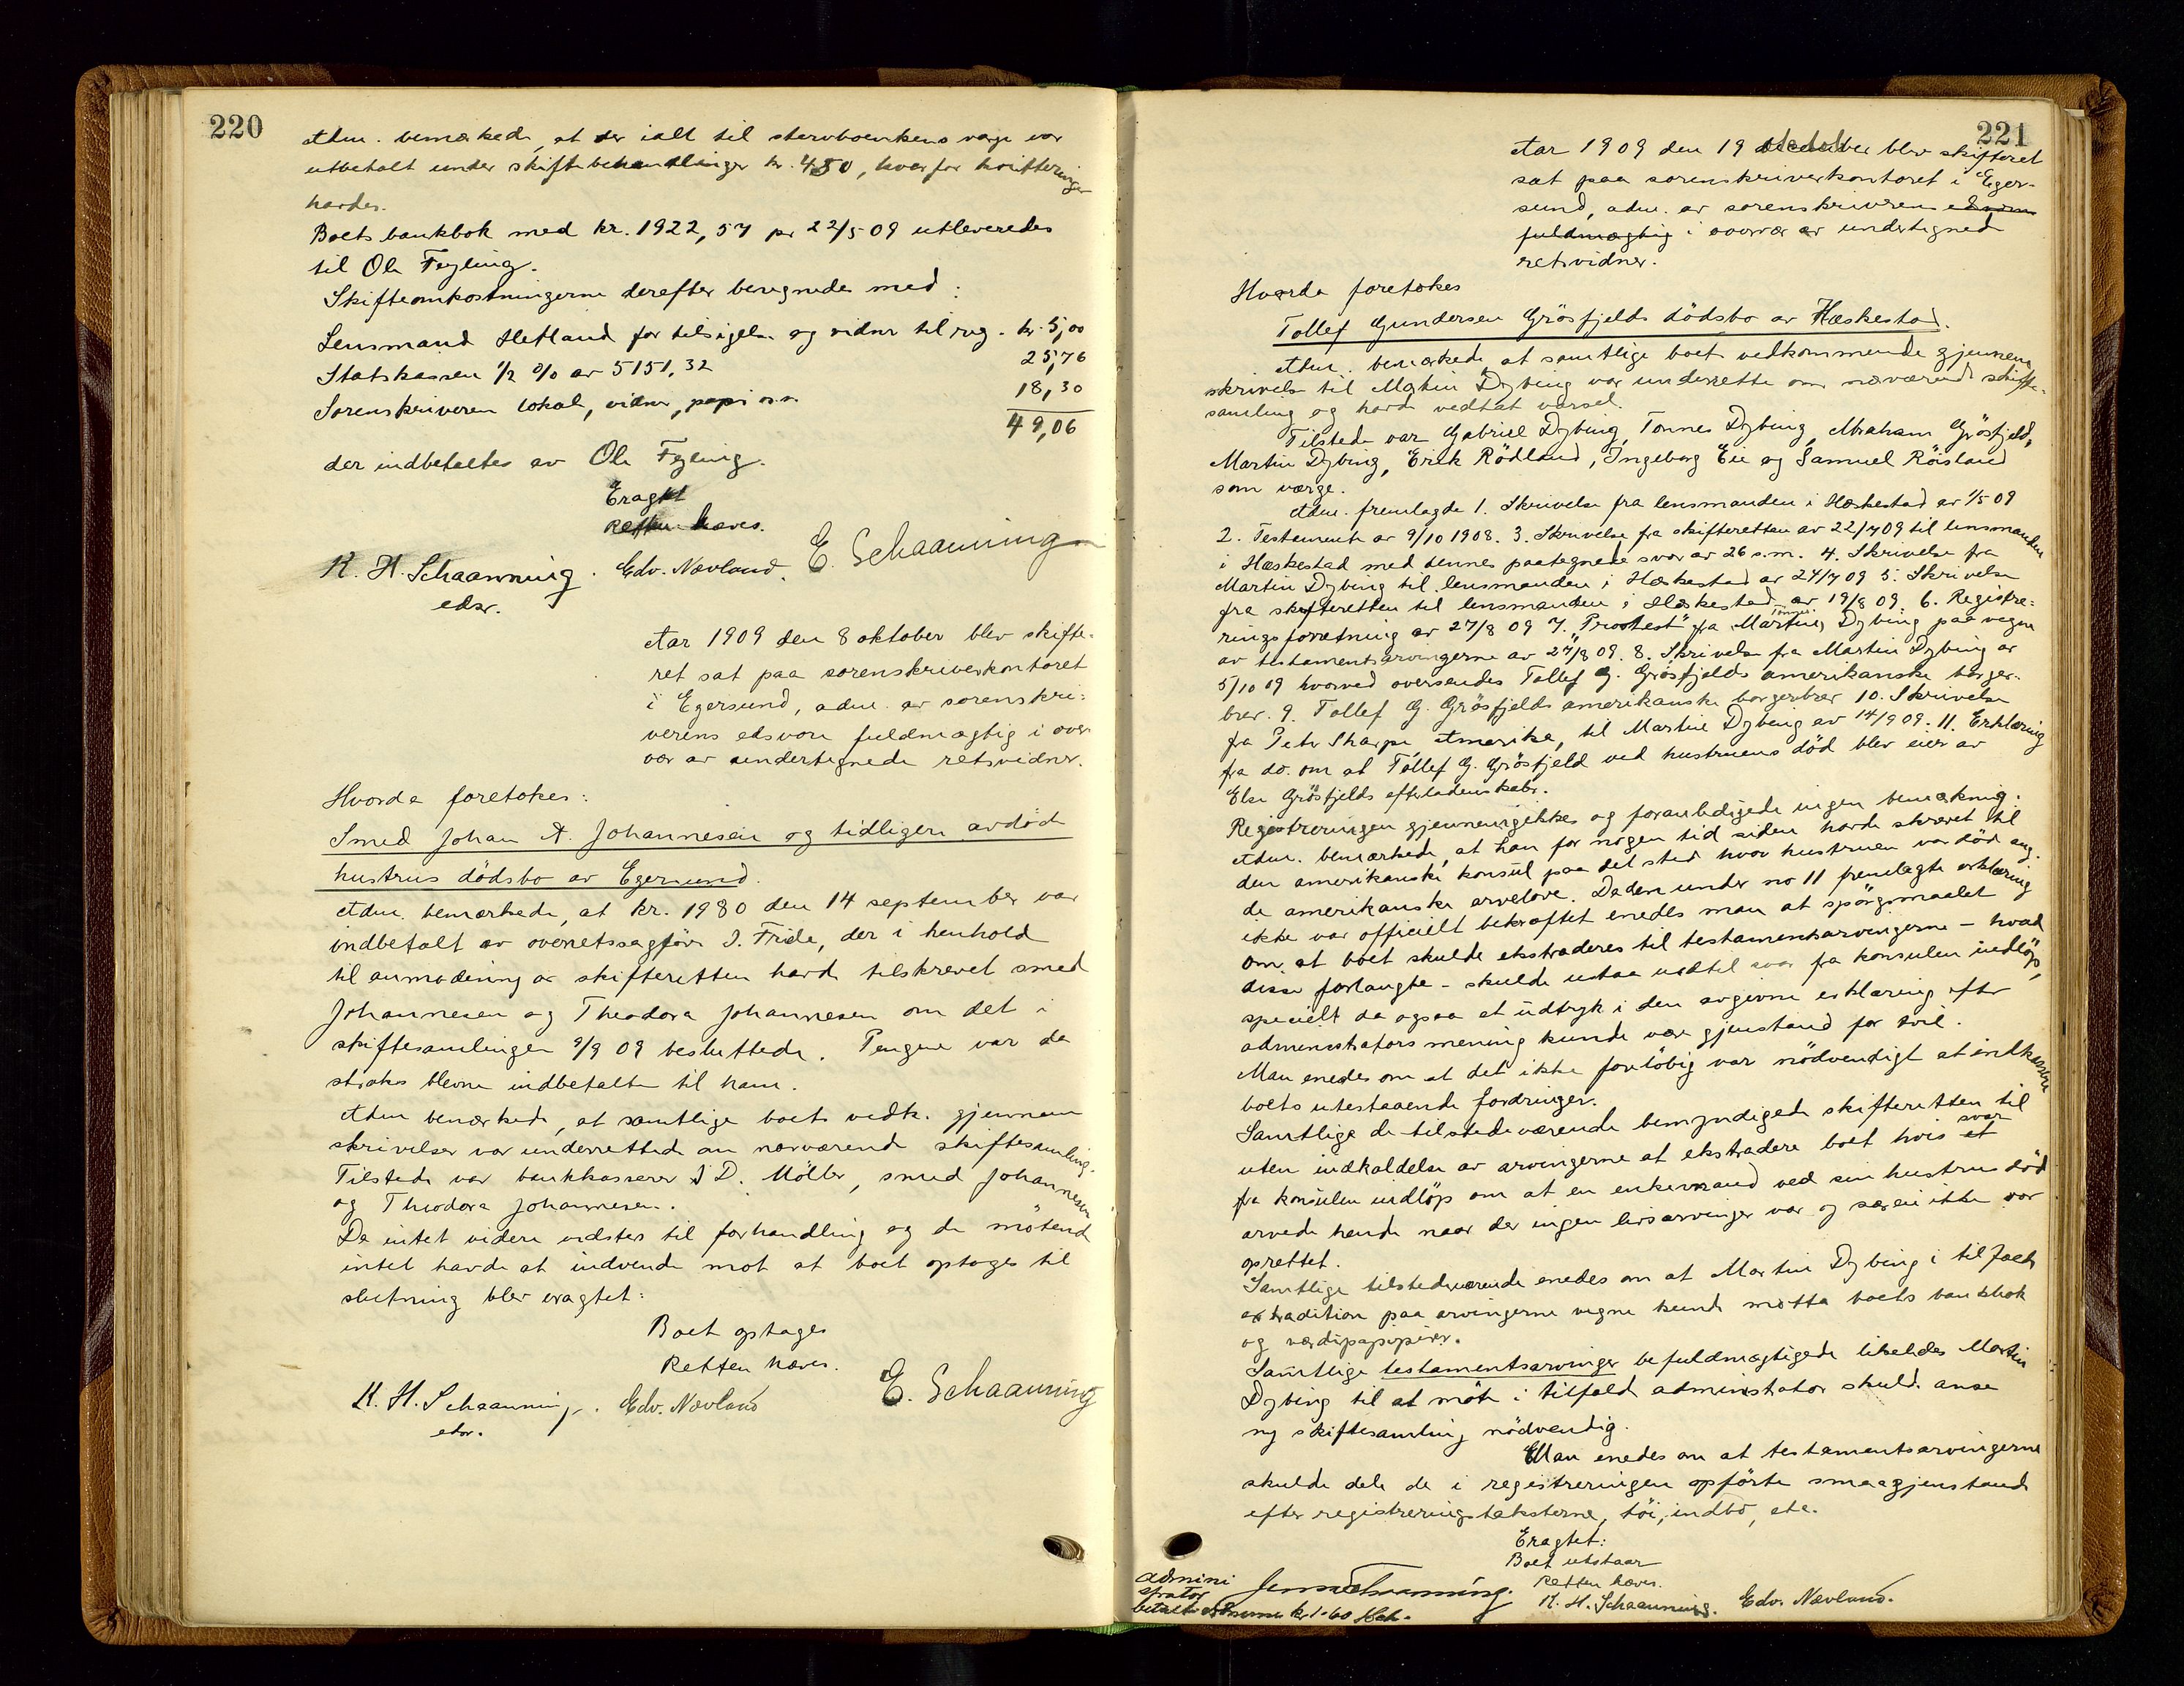 220
Adm. bemerkede, at der ialt til stervboenkens verge var
utbetalt under skiftebehandlingen kr. 450, hvorfor kvitteringer
havdes.
Boets bankbok med kr. 1922,57 pr 22/5 09 utleveredes
til Ole Fegling.
Skifteomkostningerne derefter beregnedes med:
Lensmand Hetland for tilsigelse og vidner til reg. kr. 5,00
Statskassen 1/2 % av 5151,32 25,76
Sorenskriveren lokal, vidner, papir o.s.v. 18,30
49,06
der indbetaltes av Ole Fegling.
Eragtet
Retten hæves.
K. H. Schaanning. Edv. Nævland. E. Schaanning
edsv.
Aar 1909 den 8 oktober blev skifte-
ret sat paa sorenskriverkontoret
i Egersund, adm. av sorenskri-
verens edsvorne fuldmægtig i over-
vær av undertegnede retsvidner.
Hvorda foretokes:
Smed Johan A. Johannesen og tidligere avdöd
hustrus dödsbo av Egersund.
Adm. bemerkede, at kr. 1980 den 14 september var
indbetalt av overretssagförer J. Fride, der i henhold
til anmodning av skifteretten havde tilskrevet smed
Johannesen og Theodora Johannesen om det i
skiftesamlingen 9/9 09 besluttede. Pengene var da
straks blevne indbetalte til ham.
Adm bemerkede, at samtlige boets vedk. gjennem
skrivelser var underrettede om nærværende skiftesamling.
Tilstede var bankkasserer J D. Möller, smed Johannesen
og Theodora Johannesen.
Da intet videre vidstes til forhandling og de mötende
intet havde at indvende mot at boet optages til
slutning blev eragtet:
Boet optages
Retten hæves.
K. H. Schaanning. Edv. Nævland E. Schaanning
edsv.
221
Aar 1909 den 19 oktober blev skifteret
sat paa sorenskriverkontoret i Eger-
sund, adm. av sorenskriveren edsvorne
fuldmægtig i overvær av undertegnede
retsvidner.
Hvorda foretokes
Tollef Gundersen Grösfjelds dödsbo av Heskestad.
Adm. bemerkede at samtlige boets vedkommende gjennem
skrivelse til Martin Dybing var underrettet om nærværende skifte-
samling og havde vedtat varsel.
Tilstede var Gabriel Dybing, Tönnes Dybing, Abraham Grösfjeld,
Martin Dybing, Erik Rödland, Ingeborg Eie og Samuel Röisland
som værge.
Adm. fremlagde 1. Skrivelse fra lensmanden i Heskestad av 1/5 09
2. Testamente av 9/10 1908. 3. Skrivelse fra skifteretten av 22/7 09 til lensmanden
i Heskestad med dennes paategnede svar av 26 s.m. 4. Skrivelse fra
Martin Dybing til lensmanden i Heskestad av 24/7 09 5. Skrivelse
fra skifteretten til lensmanden i Heskestad av 19/8 09. 6. Registre-
ringsforretning av 27/8 09 7. "Prostest" fra Martin Tönnes Dybing paa vegne
av testamentsarvingerne av 27/8 09. 8. Skrivelse fra Martin Dybing av
5/10 09 hvorved oversendes Tollef G. Grösfjelds amerikanske borger-
brev. 9. Tollef G. Grösfjelds amerikanske borgerbrev 10. Skrivelse
fra Peter Sharpe, Amerika, til Martin Dybing av 14/9 09. 11. Erklæring
fra do. om at Tollef G. Grösfjeld ved hustruens död blev eier av
Else Grösfjelds efterladenskaber.
Registreringen gjennemgikkes og foranledigede ingen bemerkning.
Adm. bemerkede, at han for nogen tid siden havde skrevet til
den amerikanske konsul paa det sted hvor hustruen var död ang.
de amerikanske arvelove. Da den under no 11 fremlagte erklæring
ikke var officielt bekræftet enedes man at spörgsmaalet
om at boet skulde ekstraderes til testamentsarvingerne - hvad
disse forlangte - skulde utstaa indtil svar fra konsulen indlöp,
specielt da ogsaa et udtryk i den avgivne erklæring efter
administrators mening kunde være gjenstand for tvil.
Man enedes om at det ikke forelöbig var nödvendigt at indkassere
boets utestaaende fordringer.
Samtlige de tilstedeværende bemyndigede skifteretten til
uten indkaldelse av arvingerne at ekstradere boet hvis et svar
fra konsulen indlöp om at en enkemand ved sin hustrus död
arvede hende naar der ingen livsarvinger var og særeie ikke var
oprettet.
Samtlige tilstedeværende enedes om at Martin Dybing i tilfælde
extradition paa arvingernes vegne kunde motta boets bankbok
og værdipapirer.
Samtlige testamentsarvinger befuldmægtigede likeledes Martin
Dybing til at möte i tilfælde administrator skulde anse
ny skiftesamling nödvendig.
Man enedes om at testamentsarvingerne
skulde dele de i registreringen opförte smaagjenstande
efter registreringstaksterne, töi, indbo, etc.
Eragtet:
Boet utstaar
Retten hæves.
K. H. Schaanning. Edv. Nævland.
admini
strator
kr 1.60